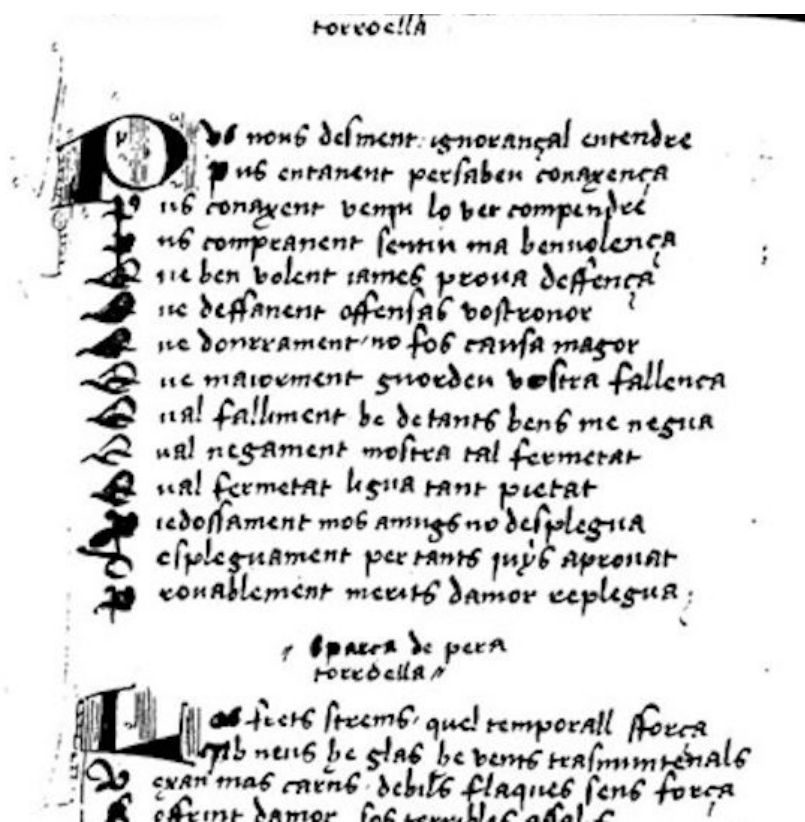 torroella
Pus nous desment ignorançal entendre
Pus entanent persaben conaxença
Pus conaxent venin lo ver compendre
Pus compranent sentiu ma benvolença
Que ben volent iames prova deffença
Que deffanent offensas vostronor
Que no fos causa maior
Que maiorment guordeu vostra fallença
Qual falliment be de tants bens me negua
Qual negament mostra tal fermetat
Qual fermetat ligua tant pietat
Piedossament mos amugs no desplegua
Despleguament per tants juys aprovat
Provablement merits damor replegua
Sparça de pera
torroella
Los frets strems quel temporall sforça
Ab neus he glas he vents
mas carns debils flaques sens força
damor sos terribles